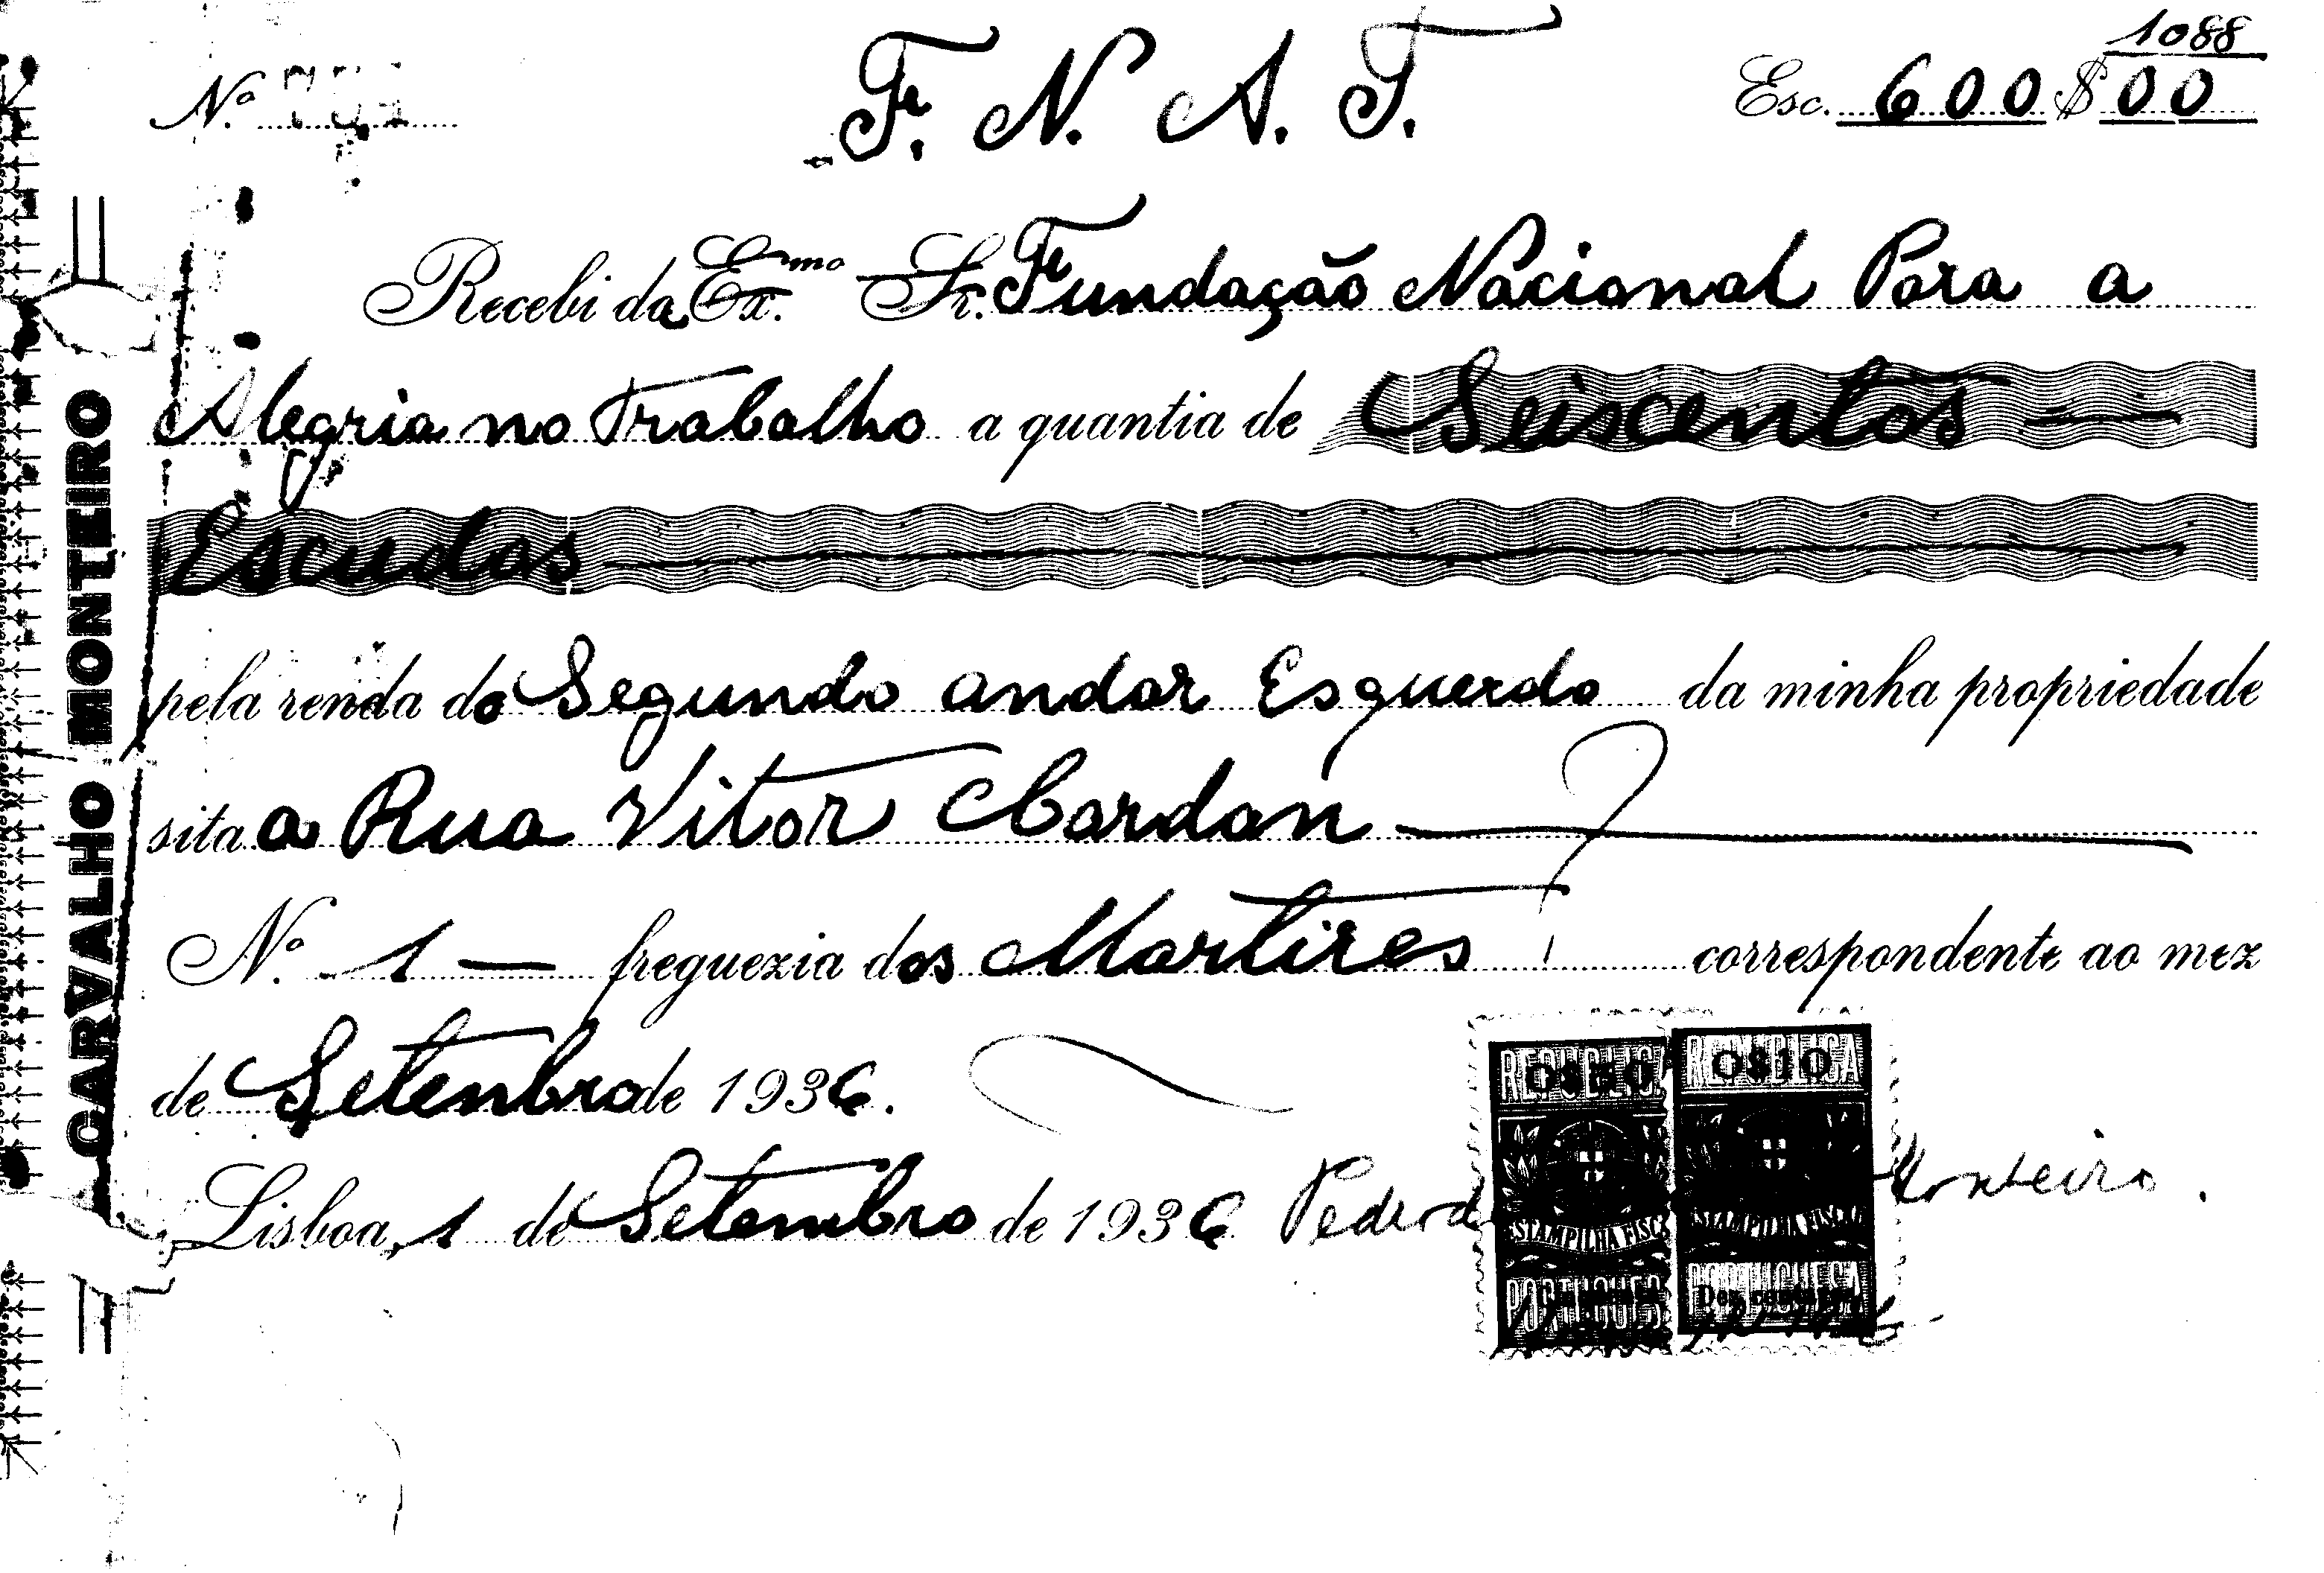 1088
Nº
F. N. A. T.
Esc. 600$00
Recebi da Ex.mo Sr. Fundação Nacional Para a
Alegria no Trabalho a quantia de Seiscentos —
Escudos
pela renda do Segundo andar Esquerdo da minha propriedade
sita a Rua Vitor Cordon
Nº 1 — freguezia dos Martires correspondente ao mez
de Setenbro de 1936.
Lisboa, 1 de Setembro de 1936 Pedro Monteiro.
REPUBLICA
0$10
ESTAMPILHA FISCAL
ESTAMPILHA FISCAL
PORTUGUESA
Dez centavos
CARVALHO MONTEIRO